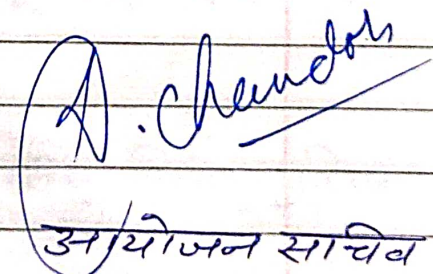 A. Chandok
आयोजन साचिव